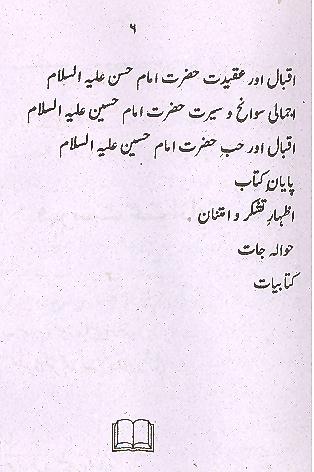 ۶
اقبال اور عقیدت حضرت امام حسن علیہ السلام
اجمالی سوانح و سیرت حضرت امام حسین علیہ السلام
اقبال اور حبِ حضرت امام حسین علیہ السلام
پایانِ کتاب
اظہارِ تشکر و امتنان
حوالہ جات
کتابیات